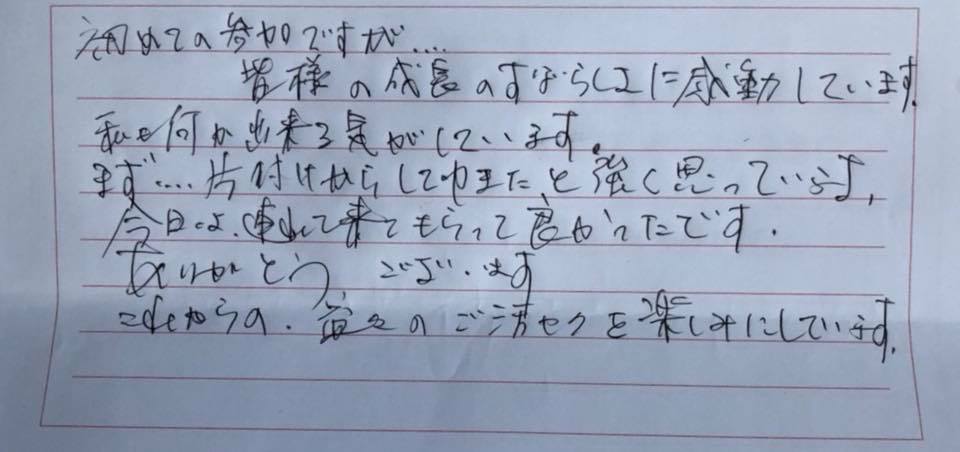 初めての参加ですが....
皆様の成長のすばらしさに感動しています.
私も何か出来る気がしています.
まず....片付けからして と強く思っています.
今日は、連れて来てもらって良かったです.
ありがとう ございます
これからの、益々のご活セクを楽しみにしています.